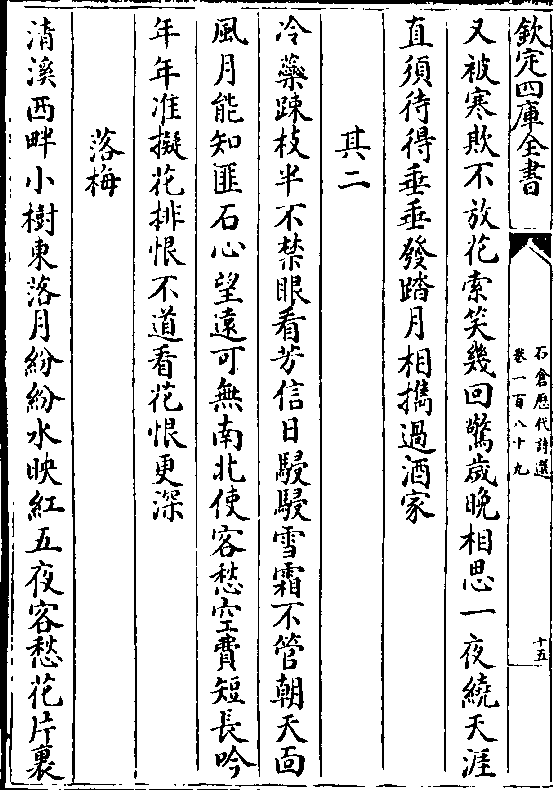 欽定四庫全書
石倉歷代詩選
卷一百八十九
十五
又被寒欺不放花索笑幾回驚歲晚相思一夜繞天涯
直須待得垂垂發踏月相攜過酒家
其二
冷藥踈枝半不禁眼看芳信日駸駸雪霜不管朝天面
風月能知匪石心望遠可無南北使客愁空費短長吟
年年准擬花排恨不道看花恨更深
落梅
清溪西畔小樹東落月紛紛水映紅五夜客愁花片裏